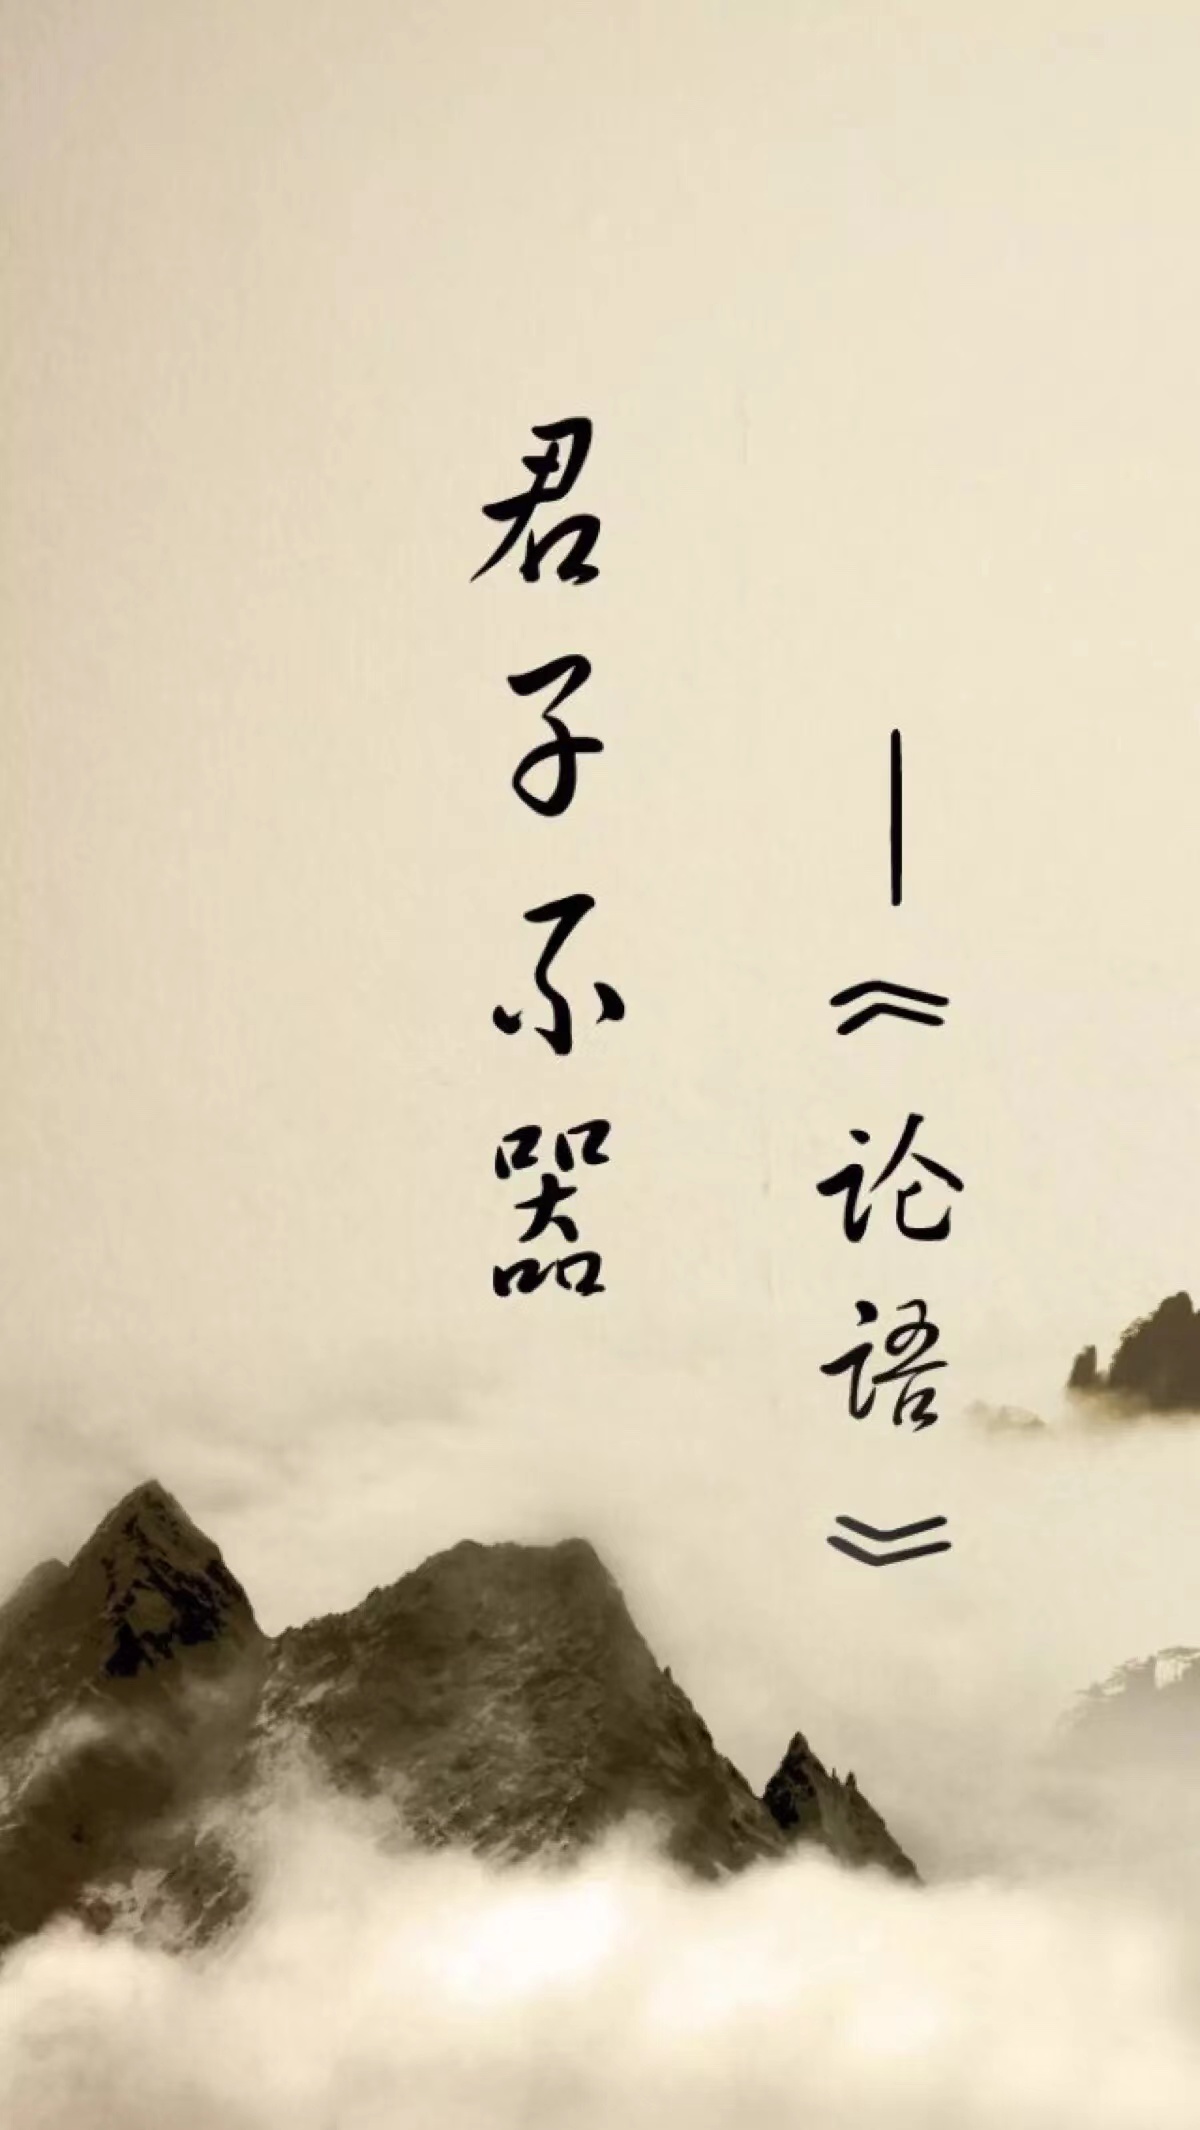 君子不器
—《论语》